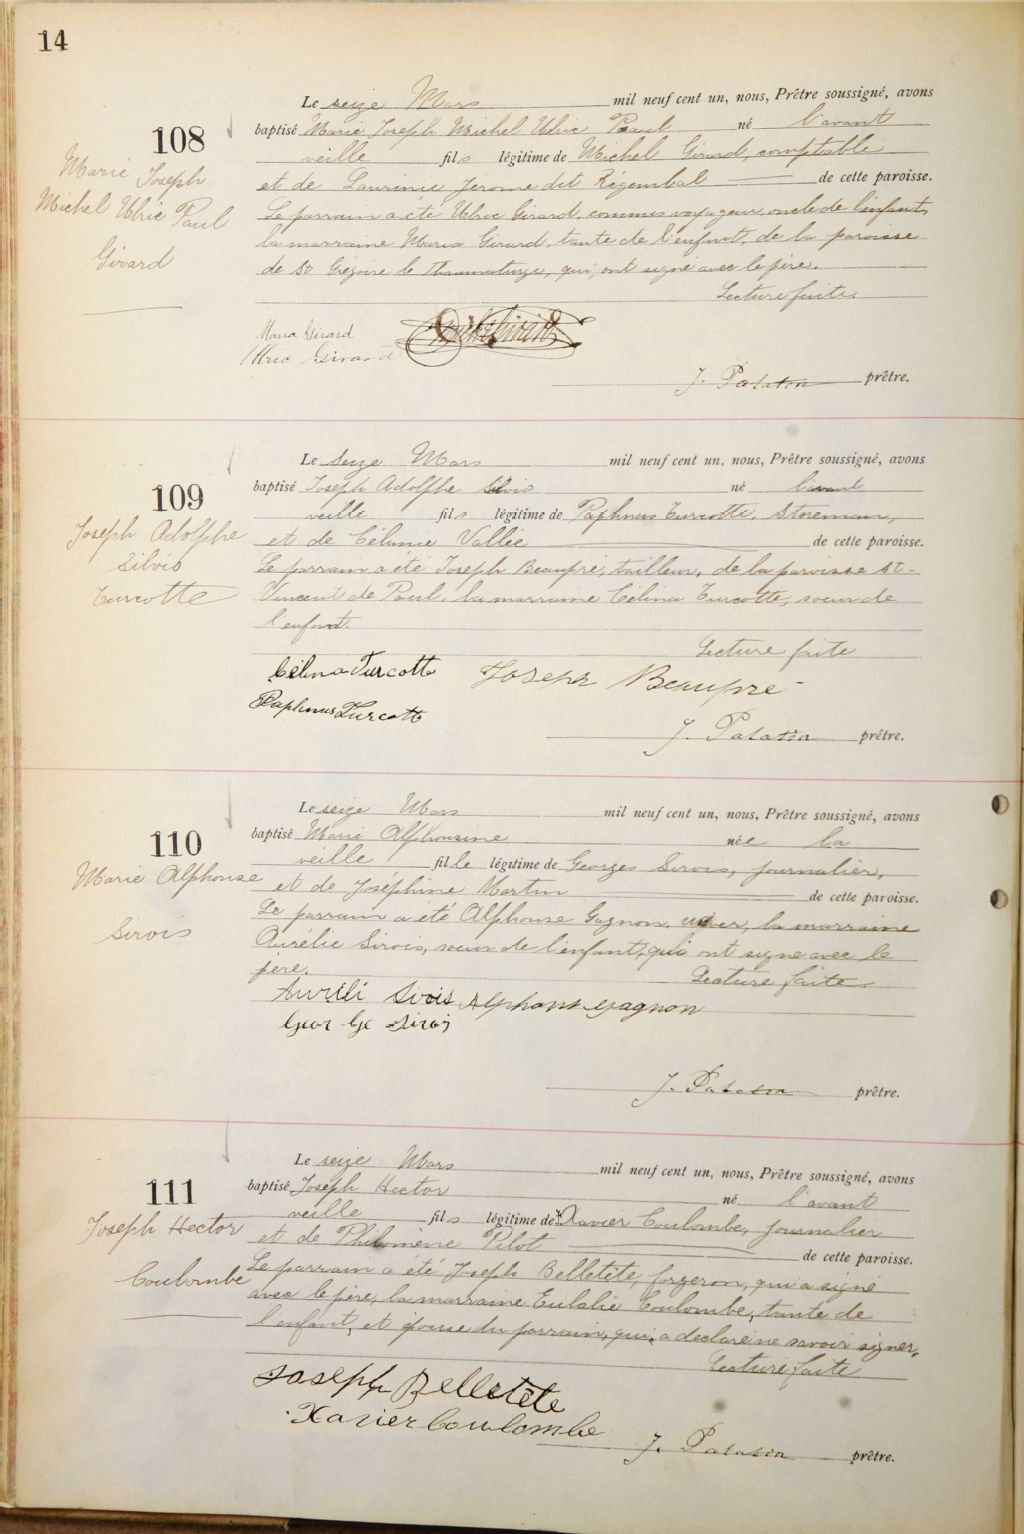 14
108
Marie Joseph
Michel Ulric Paul
Girard
Le seize Mars mil neuf cent un, nous, Prêtre soussigné, avons
baptisé Marie Joseph Michel Ulric Paul né l'avant
veille fils légitime de Michel Girard, comptable
et de Laurinie Jérome dit Régembal de cette paroisse.
Le parrain a été Ulric Girard, commis voyageur, oncle de l'enfant,
la marraine Maria Girard, tante de l'enfant, de la paroisse
de St Grégoire le Thaumaturge, qui ont signé avec le père.
Lecture faite.
Maria Girard
Ulric Girard
J. Palatin prêtre.
109
Joseph Adolphe
Silvio
Turcotte
Le seize Mars mil neuf cent un, nous, Prêtre soussigné, avons
baptisé Joseph Adolphe Silvio né l'avant
veille fils légitime de Paphnus Turcotte, Storeman,
et de Célanie Vallée de cette paroisse.
Le parrain a été Joseph Beaupré, tailleur, de la paroisse St-
Vincent de Paul, la marraine Célina Turcotte, soeur de
l'enfant.
Lecture faite
Célina Turcotte Joseph Beaupré
Paphnus Turcotte
J. Palatin prêtre.
110
Marie Alphonse
Sirois
Le seize Mars mil neuf cent un, nous, Prêtre soussigné, avons
baptisé Marie Alphonsine née la
veille fille légitime de Georges Sirois, journalier,
et de Joséphine Martin de cette paroisse.
Le parrain a été Alphonse Gagnon, la marraine
Aurélie Sirois, soeur de l'enfant, qui ont signé avec le
père. Lecture faite.
Aurili Sirois Alphonse gagnon
Geor Ge Sirois
J. Palatin prêtre.
111
Joseph Hector
Coulombe
Le seize Mars mil neuf cent un, nous, Prêtre soussigné, avons
baptisé Joseph Hector né l'avant
veille fils légitime de Xavier Coulombe, journalier
et de Philomène Pilot de cette paroisse.
Le parrain a été Joseph Belletête, forgeron, qui a signé
avec le père, la marraine Eulalie Coulombe, tante de
l'enfant, et épouse du parrain, qui a déclaré ne savoir signer.
Lecture faite
Joseph Belletête
Xavier Coulombe
J. Palatin prêtre.